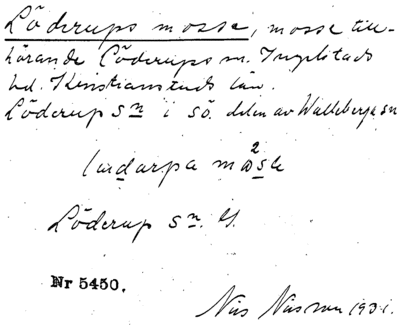 Löderups mosse, mosse till-
hörande Löderups sn. Ingelstads
hd. Kristianstads län.
Löderup sn i sö. delen av Valleberga sn
mosse
Löderup sn.
Nr 5450.
Nils Nilsson 1931.